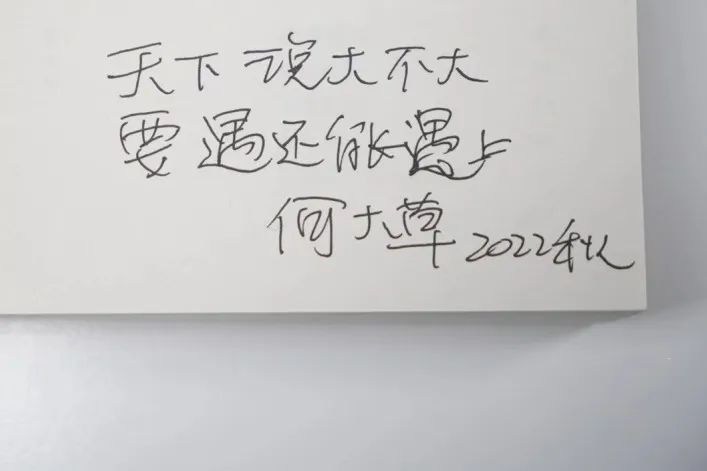 天下说大不大
要遇还能遇上
何大草 2022秋